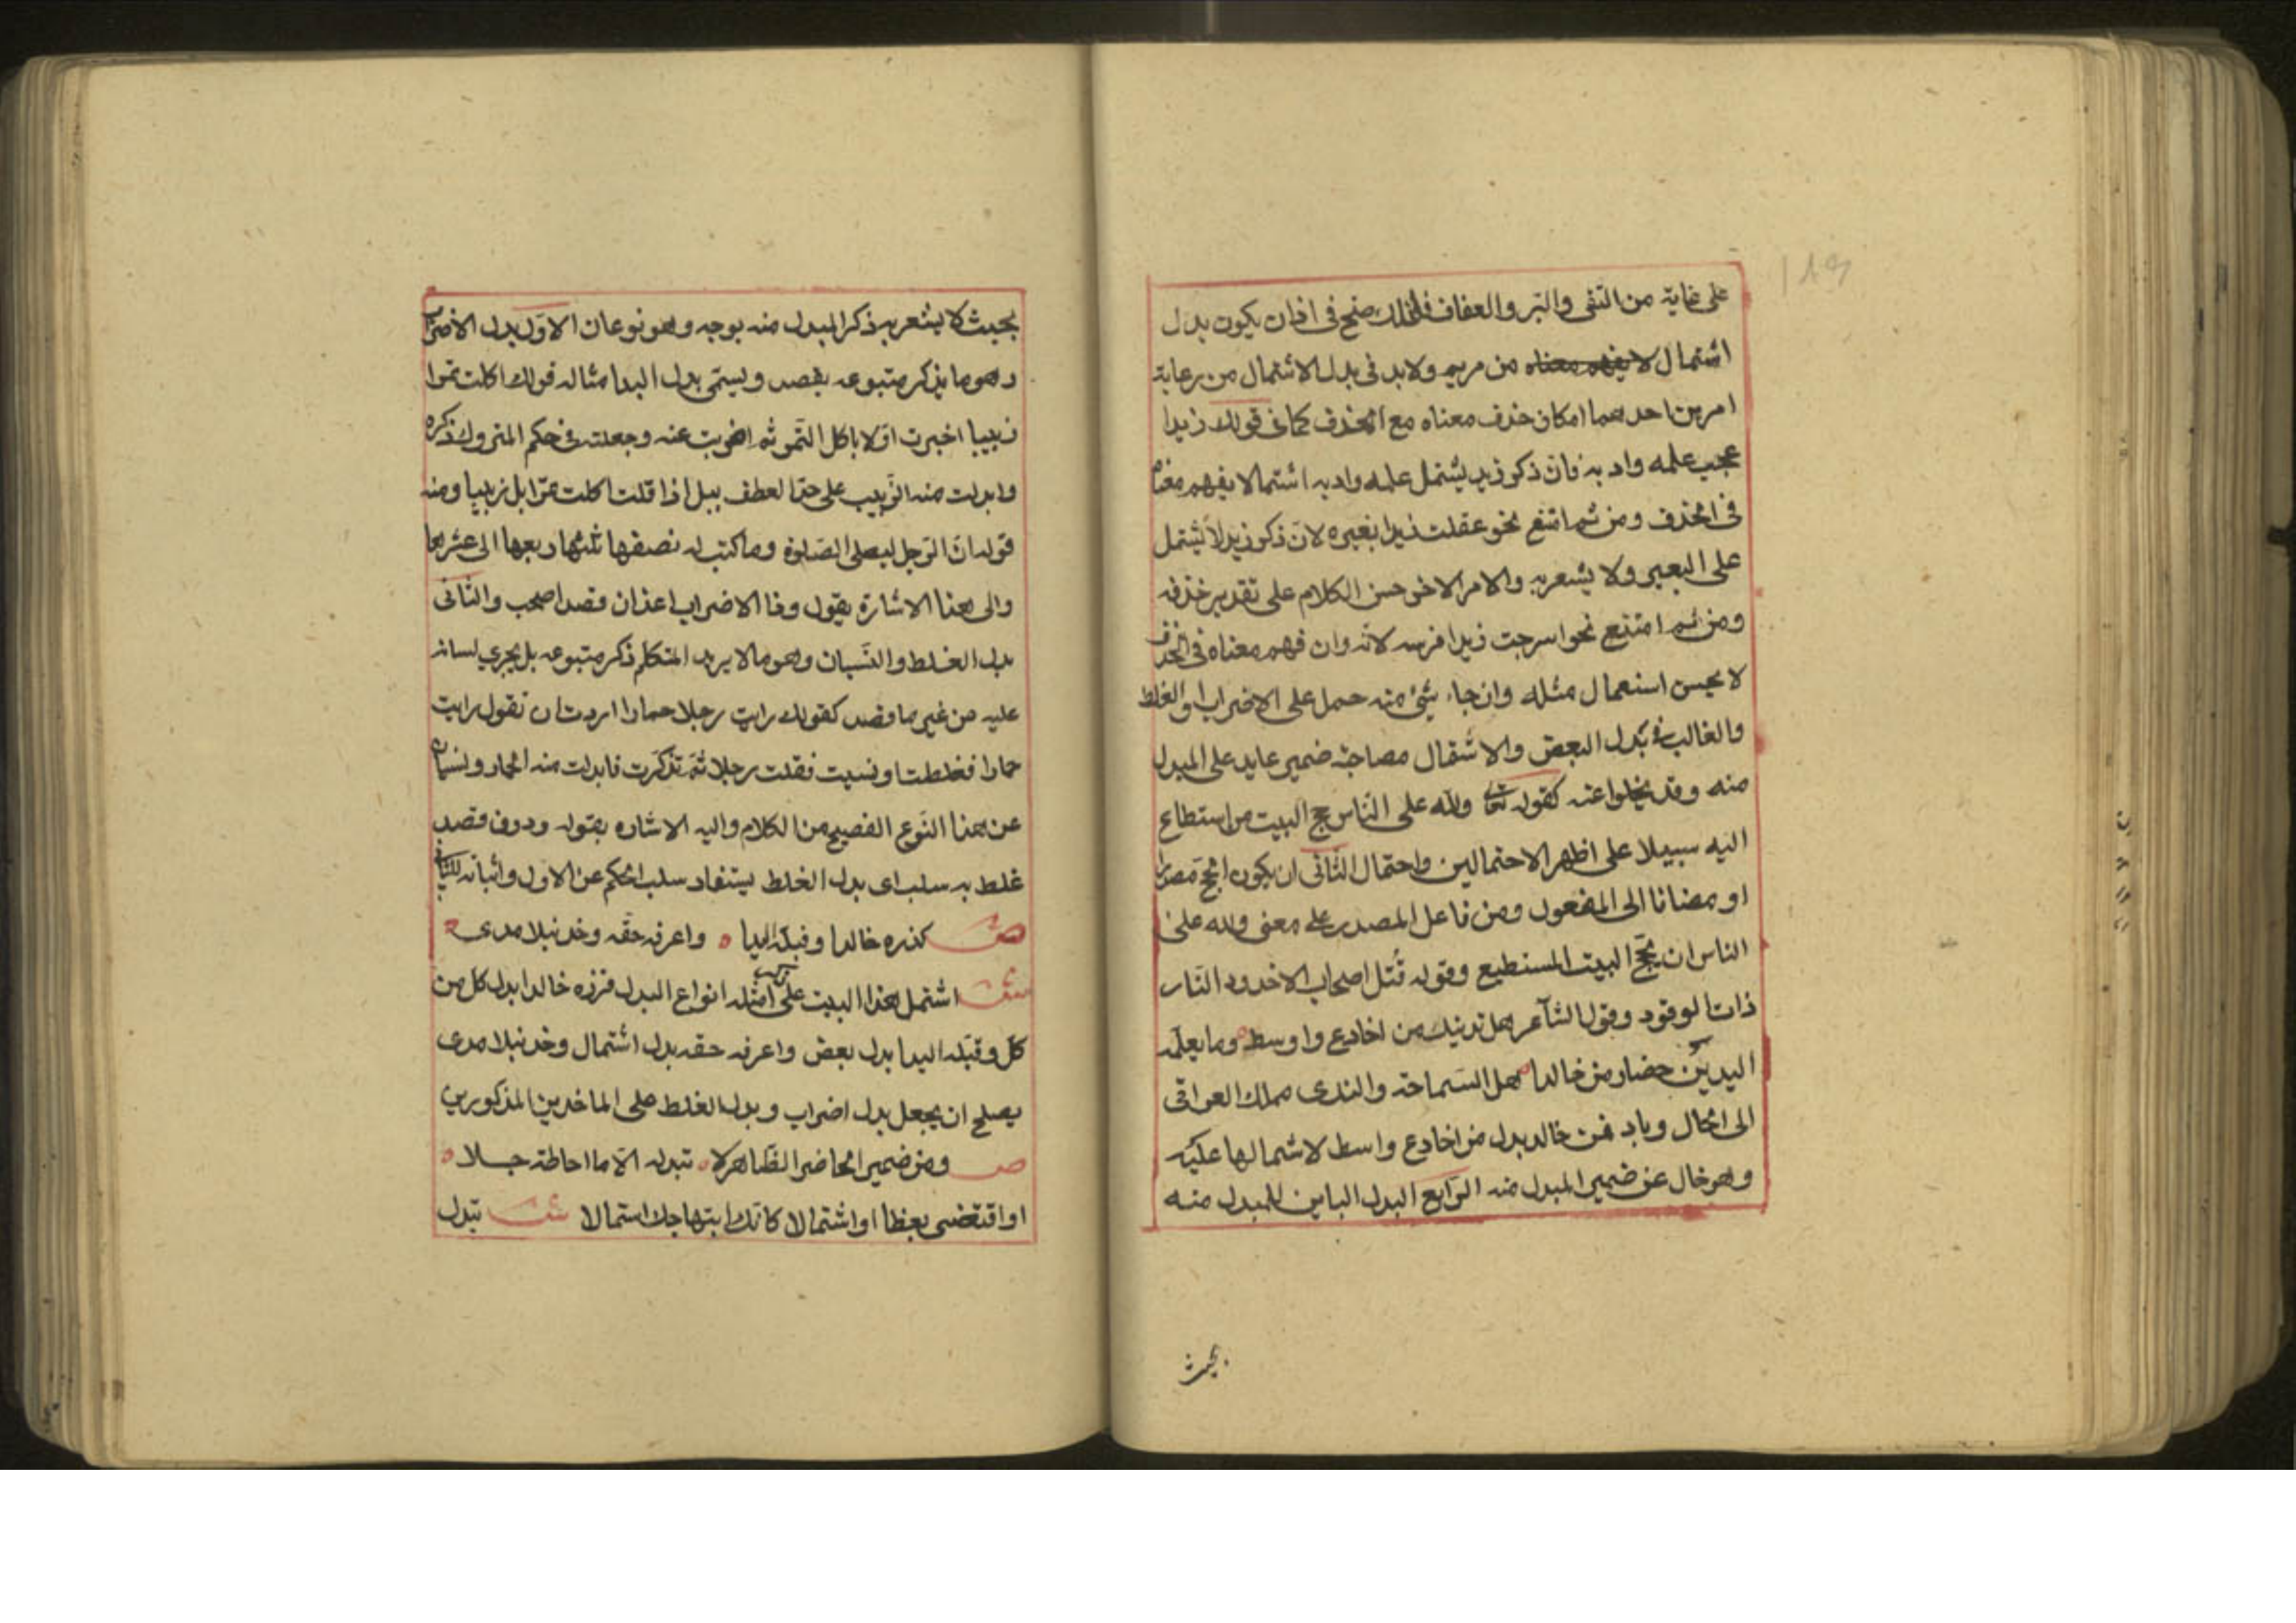 ١٨٩
على غاية من التقى والبر والعفاف فلذلك صح فى اذ ان يكون بدل
اشتمال لا يفهم معناه من مريم ولا بد فى بدل الاشتمال من رعاية
امرين احدهما امكان حذف معناه مع الحذف كما فى قولك زيدا
عجب علمه وادبه فان ذكر زيد يشتمل علمه وادبه اشتمالا يفهم معناه
فى الحذف ومن ثم امتنع نحو عقلت زيدا بعيره لان ذكر زيد لا يشتمل
على البعير ولا يشعر به والامر الاخر حسن الكلام على تقدير حذفه
ومن ثم امتنع نحو اسرجت زيدا فرسه لانه وان فهم معناه فى الحذف
لا يحسن استعمال مثله وان جاء شئ منه حمل على الاضراب او الغلط
والغالب فى بدل البعض والاشتمال مصاحبة ضمير عايد على المبدل
منه وقد يخلوا عنه كقوله تعالى ولله على الناس حج البيت من استطاع
اليه سبيلا على اظهر الاحتمالين واحتمال الثانى ان يكون الحج مصدرا
او مضافا الى المفعول ومن فاعل المصدر على معنى ولله على
الناس ان يحج البيت المستطيع وقوله قتل اصحاب الاخدود النار
ذات الوقود وقول الشاعر هل تدنينك من اخادع واوسط ه وما يعلمه
اليدين حضار من خالدا ه هل السماحة والندى مملك العراقى
الى الحال وباد فمن خالد بدل من اخادع واسط لاشتمالها عليه
وهو خال عن ضمير المبدل منه الرابع البدل المباين للمبدل منه
بحيث
بحيث لا يشعر به ذكر المبدل منه بوجه وهو نوعان الاول بدل الاضراب
وهو ما يذكر متبوعه بقصد ويسمى بدل البدا مثاله قولك اكلت تمرا
زبيبا اخبرت اولا باكل التمر ثم اضربت عنه وجعلته فى حكم المتروك ذكره
وابدلت منه الزبيب على حد العطف ببل اذا قلت اكلت تمرا بل زبيبا ومنه
قوله ان الرجل ليصلى الصلوة وما كتب له نصفها ثلثها ربعها الى عشرها
والى هذا الاشارة بقول وذا الاضراب اعذ ان قصدا صحب والثانى
بدل الغلط والنسيان وهو ما لا يريد المتكلم ذكر متبوعه بل يجري لسانه
عليه من غير ما قصد كقولك رايت رجلا حمارا اردت ان تقول رايت
حمارا فغلطت او نسيت فقلت رجلا ثم تذكرت فابدلت منه الحمار ونسيان
عن هذا النوع الفصيح من الكلام واليه الاشاره بقوله ودون قصد
غلط به سلب اى بدل الغلط يستفاد سلب الحكم عن الاول واثباته للثانى
ص كزره خالدا وقبله اليدا ه واعرفه حقه وخذ نبلا مدى ه
ش اشتمل هذا البيت على امثلة انواع البدل فزره خالدا بدل كل من
كل وقبله اليدا بدل بعض واعرفه حقه بدل اشتمال وخذ نبلا مدى
يصلح ان يجعل بدل اضراب وبدل الغلط على الماخذين المذكورين
ص ومن ضمير الحاضر الظاهر لا ه تبدله الا ما احاطة جلا ه
او اقتضى بعظا او اشتمالا كانك ابتهاجك استمالا ش تبدل